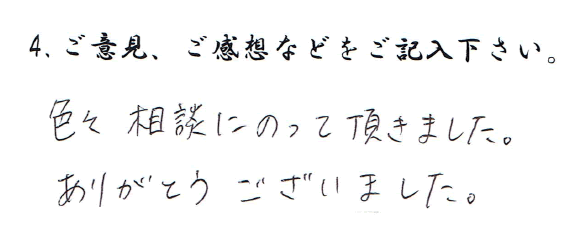 4、ご意見、ご感想などをご記入下さい。
色々 相談にのって頂きました。
ありがとう ございました。